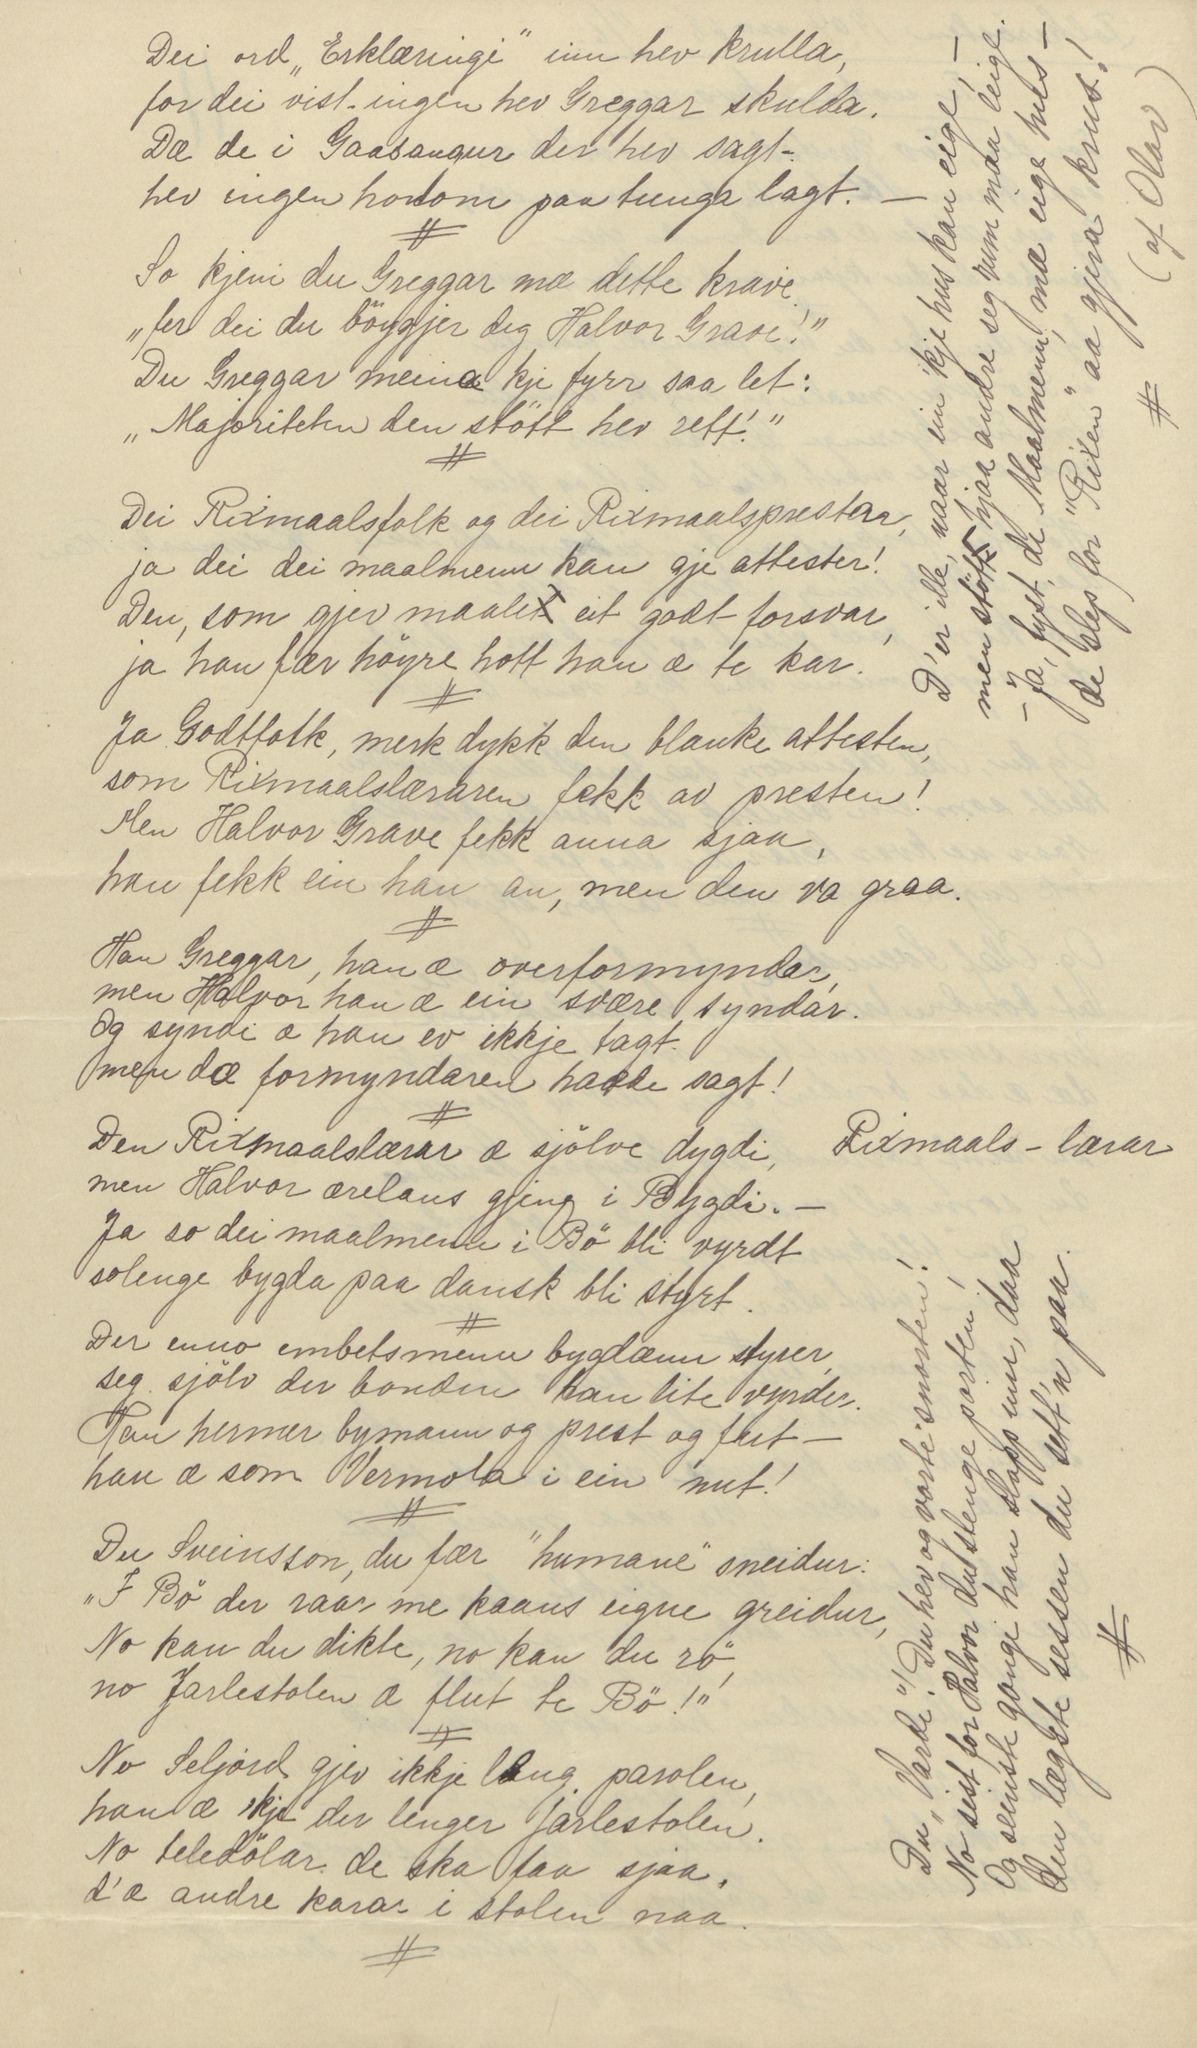 Dei ord „Erklæringi“ inn hev krulla,
for dei vist ingen hev Greggar skulda.
Dæ de i Gaasaugur der hev sagt-
hev ingen honom paa tunga lagt. —
#
So kjem du Greggar mæ dette krave
„fer dei du böygjer dig Halvor Grave!“
Du Greggar meina kje fyrr saa let:
„Majoriteten den stött hev rett!“
#
Dei Rixmaalsfolk og dei Rixmaalsprestar,
ja dei dei maalmenn kan gje attester!
Den, som gjev maalet eit godt forsvar,
ja han fær höyre hott han æ te kar.
#
Ja Godtfolk, merk dykk den blanke attesten,
som Rixmaalslæraren fekk av presten!
Men Halvor Grave fekk anna sjaa,
han fekk ein han au, men den va graa.
#
Han Greggar, han æ overformyndar,
men Halvor han æ ein svære syndar.
Og syndi æ han ev ikkje tagt
men dæ formyndaren hadde sagt!
#
Den Rixmaalslærar æ sjölve dygdi,
men Halvor ærelaus gjeng i Bygdi. —
Ja so dei maalmenn i Bö bli vyrdt
solenge bygda paa dansk bli styrt.
#
Der enno embetsmenn bygdænn styrer,
seg sjölv der bonden kan lite vyrder.
Han hermer bymann og prest og fut —
han æ som Vermola i ein nut!
#
Du Sveinsson, du fær "humane" sneidur:
„I Bö der raar me kaans eigne greidur,
No kan du dikte, no kan du rö,
no Jarlestolen æ flut te Bö!“
#
No Seljord gjev ikkje lang parolen,
han æ kje der lenger Jarlestolen.
No teledölar de ska faa sjaa,
d'æ andre karar i stolen naa.
#
D'er ille, naar ein kje hus kan eige, —
men stött hjaa andre seg rum maa leige.
— Ja, fyst de Maalmenn, mæ eige hus —
de slep for "Rixen" aa gjera krus!
#
(af Olav)
Rixmaals-lærar
Du „Varde“! Du hev og vorte "snorten!
No sist for Halvor du stenge porten!
Og seinste gonge han slapp inn, daa
den lægste sessen du sett'n paa.
#